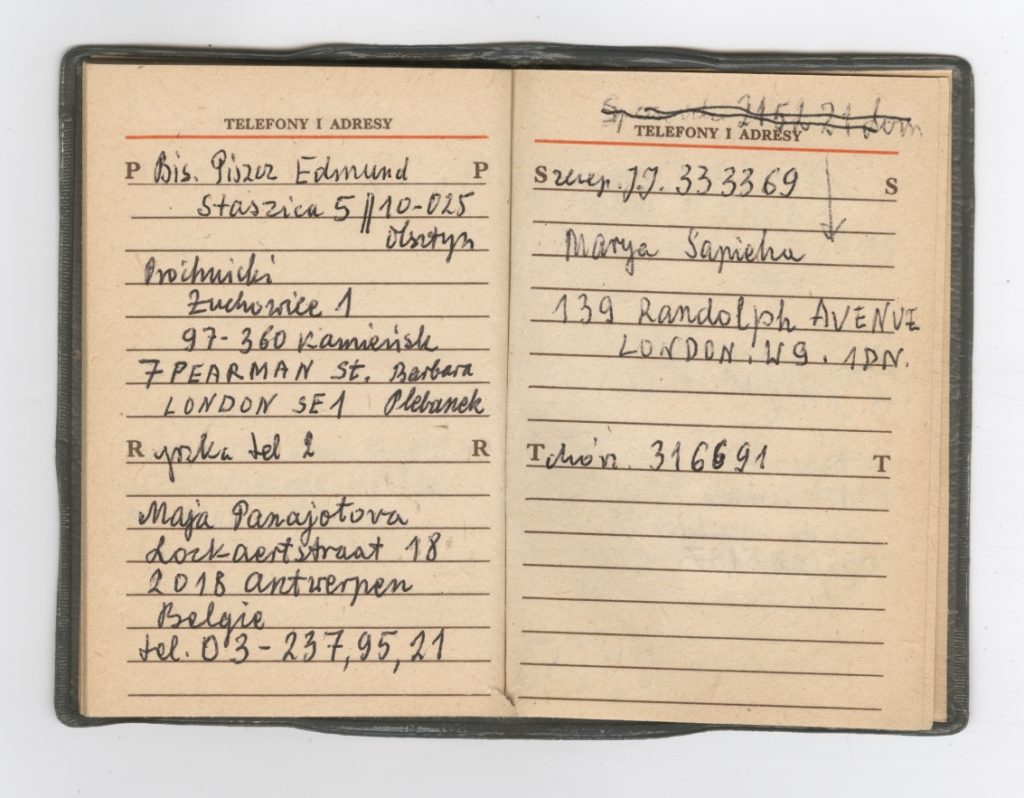 TELEFONY I ADRESY
P Bis. Piszcz Edmund P
Staszica 5 // 10-025
Olsztyn
Prochnicki
Żuchowice 1
97-360 Kamieńsk
7 PEARMAN St. Barbara
LONDON SE1 Plebanek
R yszka tel 2 R
Maja Panajotova
Lockaertstraat 18
2018 Antwerpen
Belgie
tel. 03-237,95,21
21 dom
TELEFONY I ADRESY
S zczep. J.J. 333369 S
Marya Sapieha
139 Randolph AVENUE
LONDON. W9. 1DN.
T chórz. 316691 T